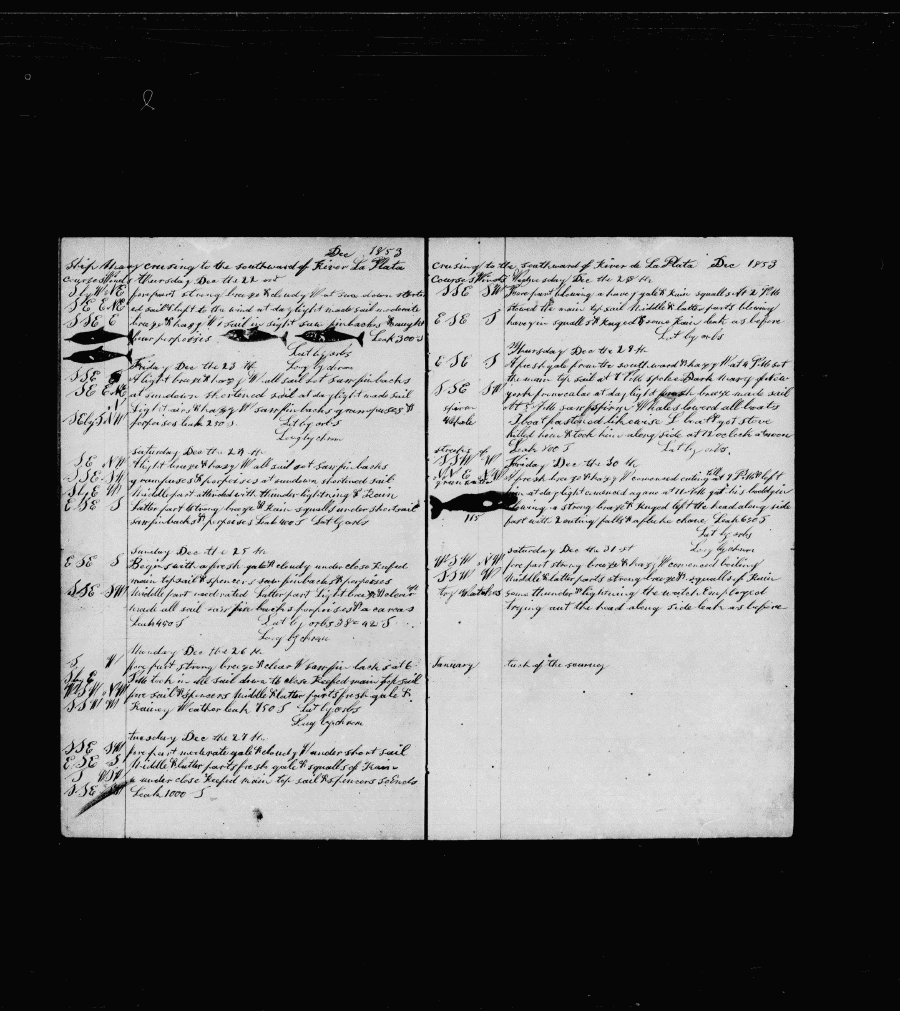 Dec 1853
Ship Mary crusing to the southward of River La Plata
Courses Winds Thursday Dec the 22
S by W N E fore part strong breze & cloudy W at sun down shorten
S E ENE ed sail & kept to the wind at daylight made sail moderate
SSE E breze & hazy W 1 sail in sight saw finbacks & caught
four porpoises Leak 300 S
Lat by orbs
Long by chron
Friday Dec the 23
SSE A light breze & hazy W all sail set saw finbacks
SSE ENE at sundown shortened sail at daylight made sail
N light airs & hazy W saw finbacks grampuses &
NW porpoises leak 250 S Lat by orb S
Long by chron
Saturday Dec the 24 th
SE NW A light breze & hasy W all sail set saw finbacks
SSE SW grampuses & porpoises at sundown shortened sail
S by E W Middle part attended with thunder lightning & Rain
ESE S Latter part strong breze & Rain squalls under short sail
saw finbacks & porpoises Leak 400 S Lat by orbs
Sunday Dec the 25 th
ESE S Begins with a fresh gale & cloudy under close Reefed
main topsail & spencers saw finbacks & porpoises
SSE SW Middle part moderated Latter part Light breze & clear
made all sail saw finbacks porpoises & a carcas
Leak 450 S Lat by orbs 38 = 42 S
Long by chron
Monday Dec the 26 th
S W fore part strong breze & clear W saw finbacks at 6
S by E PM took in sail down to close Reefed main top sail
WSW NW fore sail & spencers Middle & latter parts fresh gale &
SSW W Rainey Weather leak 750 S Lat by orbs
Long by chron
Tuesday Dec the 27 th
SSE SW fore part moderate gale & cloudy W under short sail
ESE S Middle & latter parts fresh gale & squalls of Rain
S WSW & under close Reefed main top sail & spencers
SSE SW Leak 1000 S
Crusing to the southward of River de La Plata Dec 1853
Courses Winds Wednesday Dec the 28 th
SSE SW Fore part blowing a havey gale & Rain squalls At 2 PM
stowed the main top sail Middle & latter parts blowing
ESE S havey in squalls & Rugged & some Rain leak as before
Lat by orbs
Thursday Dec the 29 th
ESE S A fresh gale from the southward & hazy W at 4 PM set
the main top sail at 7 PM spoke Bark Mary
SSE SW at daylight fresh breze made sail
sperm at PM saw sperm Whales lowered all boats
Whale L boat fastened likewise L boat got stove
killed him & took him along side at 12 oclock a noon
Leak 400 S Lat by orbs.
SSW W Friday Dec the 30 th
NNE NW A fresh breze & hazy W comenced cuting at 7 PM left
off at daylight comenced again at 11 AM got his body in
blowing a strong breze & Rugged left the head along side
115 fast with 2 cuting falls & a fluke chane Leak 650 S
Lat by orbs
Long by chron
Saturday Dec the 31 st
WSW NW fore part strong breze & hazy W comenced boiling
SSW W Middle & latter parts strong breze & squalls of Rain
try watches some thunder & lightning the watch Employed
trying out the head along side leak as before
January